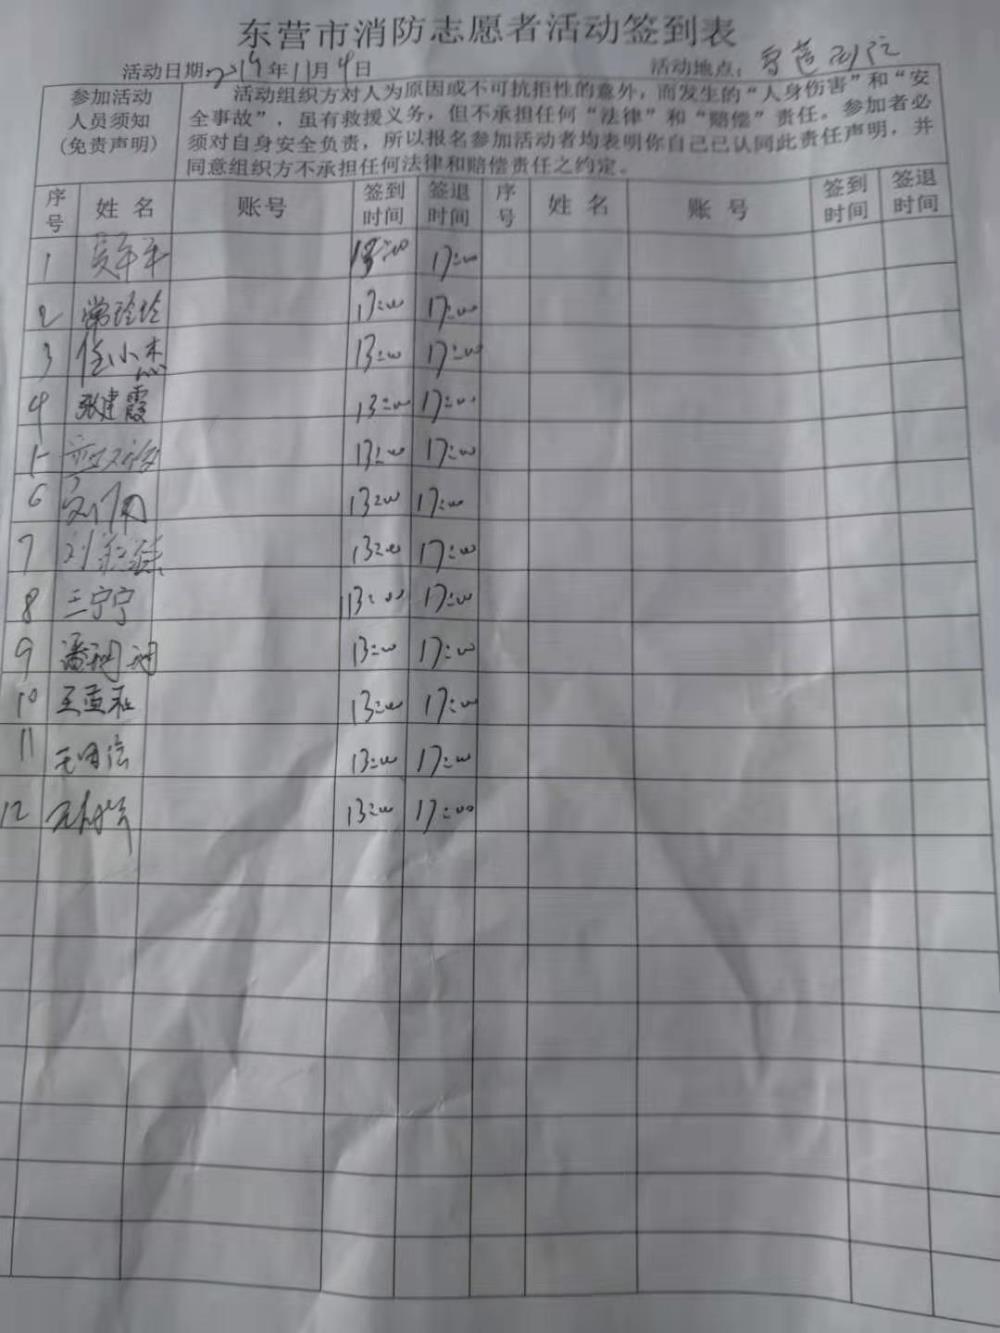 东营市消防志愿者活动签到表
活动日期:2019年11月9日 活动地点:
参加活动人员须知(免责声明)
活动组织方对人为原因或不可抗拒性的意外,而发生的“人身伤害”和“安
全事故”,虽有救援义务,但不承担任何“法律”和“赔偿”责任。参加者必
须对自身安全负责,所以报名参加活动者均表明你自己已认同此责任声明,并
同意组织方不承担任何法律和赔偿责任之约定。
序号 姓名 账号 签到时间 签退时间 序号 姓名 账号 签到时间 签退时间
1 17:00
2 常玲玲 13:00 17:00
3 任小杰 13:00 17:00
4 张建霞 13:00 17:00
5 13:00 17:00
6 13:00 17:00
7 13:00 17:00
8 王宁宁 13:00 17:00
9 13:00 17:00
10 13:00 17:00
11 13:00 17:00
12 13:00 17:00